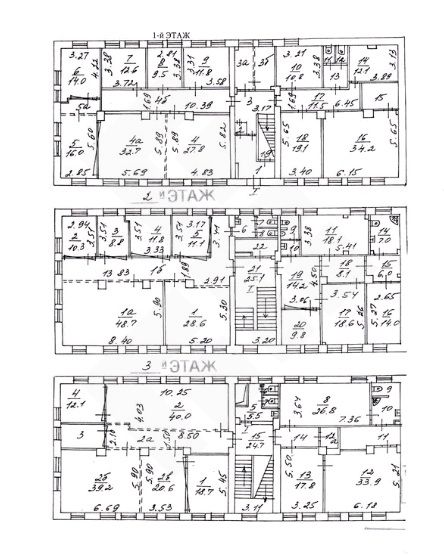 1-й ЭТАЖ
3.27 7 2.81 9 3а 3б 3.21 14 3.13
6 4.22 3.38 12.6 8 3.31 11.8 10 3.38 12.1
14.0 3.72 9.5 3.38 3.58 10.8 13 3.89
5а 1.69 4б 10.39 3 3.17 1.69 17 11.5 6.45 15
5 5.60 4а 5.89 5.89 4 5.65 18 16 5.62
16.0 32.7 27.8 1 19 19.1 34.2
2.85 5.69 4.83 I 3.40 6.15
2й ЭТАЖ
2.94 3 4 3.17 11 14
2 8.8 3.51 11.8 3.51 5 3.41 6 7 9 3.38 18.1 7.0
10.3 3.33 11.1 8 5.41
13.83 1б 1.89 2.91 22 21 19 4.50 18 15
25.1 14.2 8.1 6.0
1а 5.90 1 5.30 I 3.06 3.54 2.65
48.7 28.6 20 17 5.26 5.27 16
9.8 18.6 14.0
8.40 5.20 3.20
3й ЭТАЖ
4 10.25 8 9
12.1 4.03 2 5 3.64 26.8 10
40.0 5.5 7.36
3 2а 8.50 I 15 14 12 11
24.7
2б 5.90 5.90 2в 1 5.45 5.50 13 12 5.21
39.2 20.6 18.7 17.8 33.9
6.69 3.53 3.11 3.25 6.18